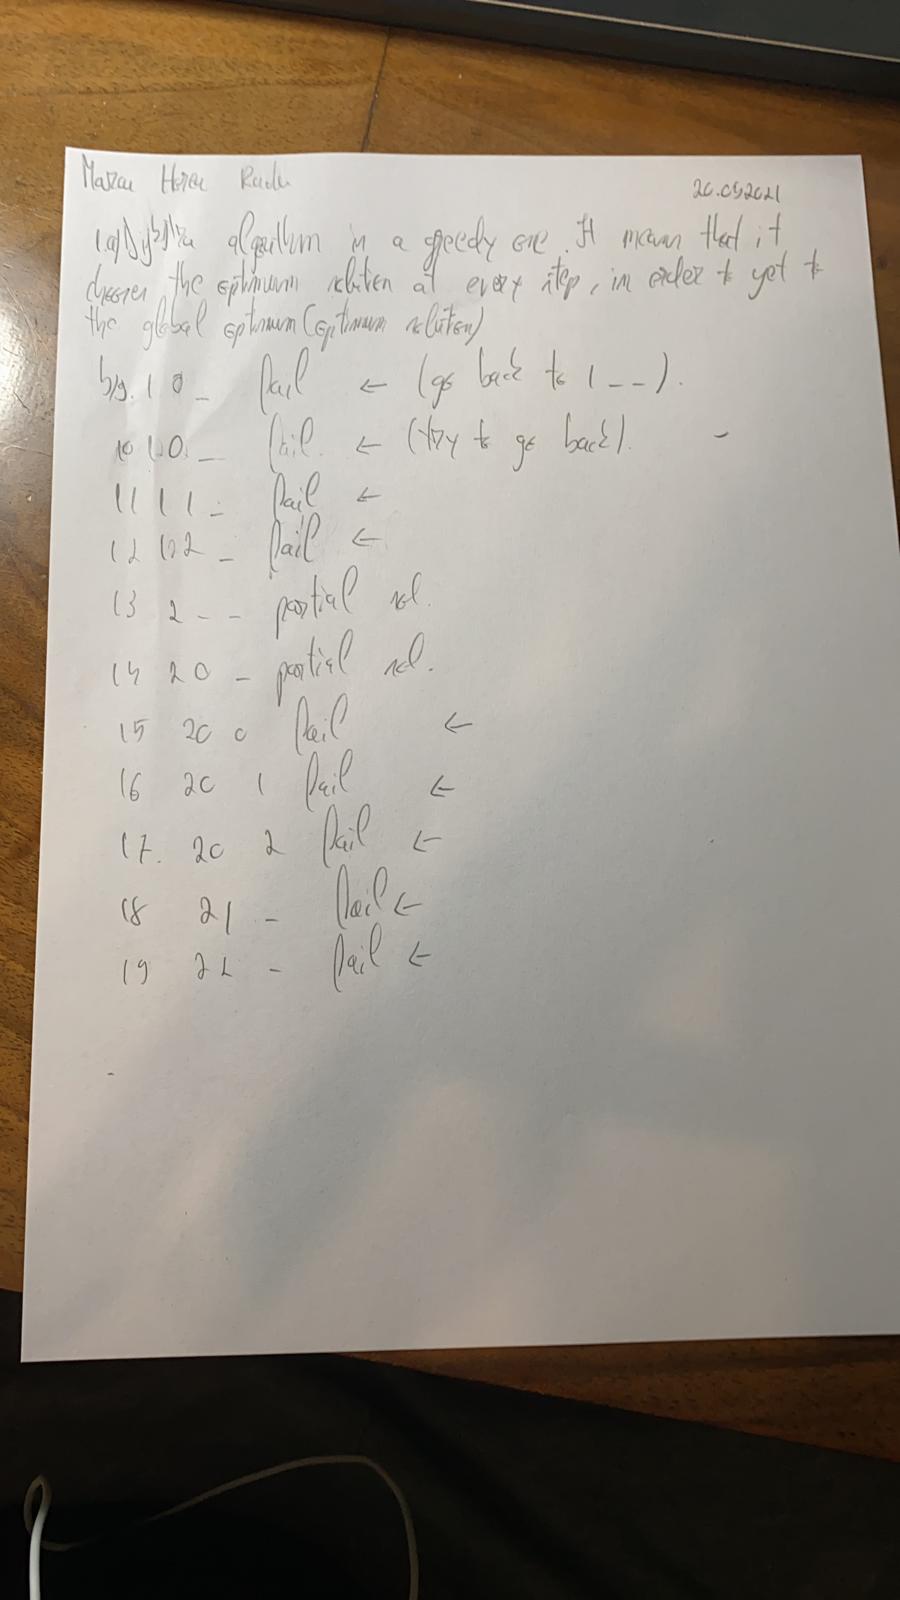 Horea Radu 20.05.2021
1.a) Dijkstra algorithm is a greedy one. It means that it
chooses the optimum solution at every step, in order to get to
the global optimum (optimum solution)
b) 9. 1 0 _ fail ← (go back to 1 _ _).
10 1 0 _ fail. ← (try to go back).
11 1 1 _ fail ←
12 1 2 _ fail ←
13 2 _ _ partial sol.
14 2 0 _ partial sol.
15 2 0 0 fail ←
16 2 0 1 fail ←
17. 2 0 2 fail ←
18 2 1 _ fail ←
19 2 2 _ fail ←